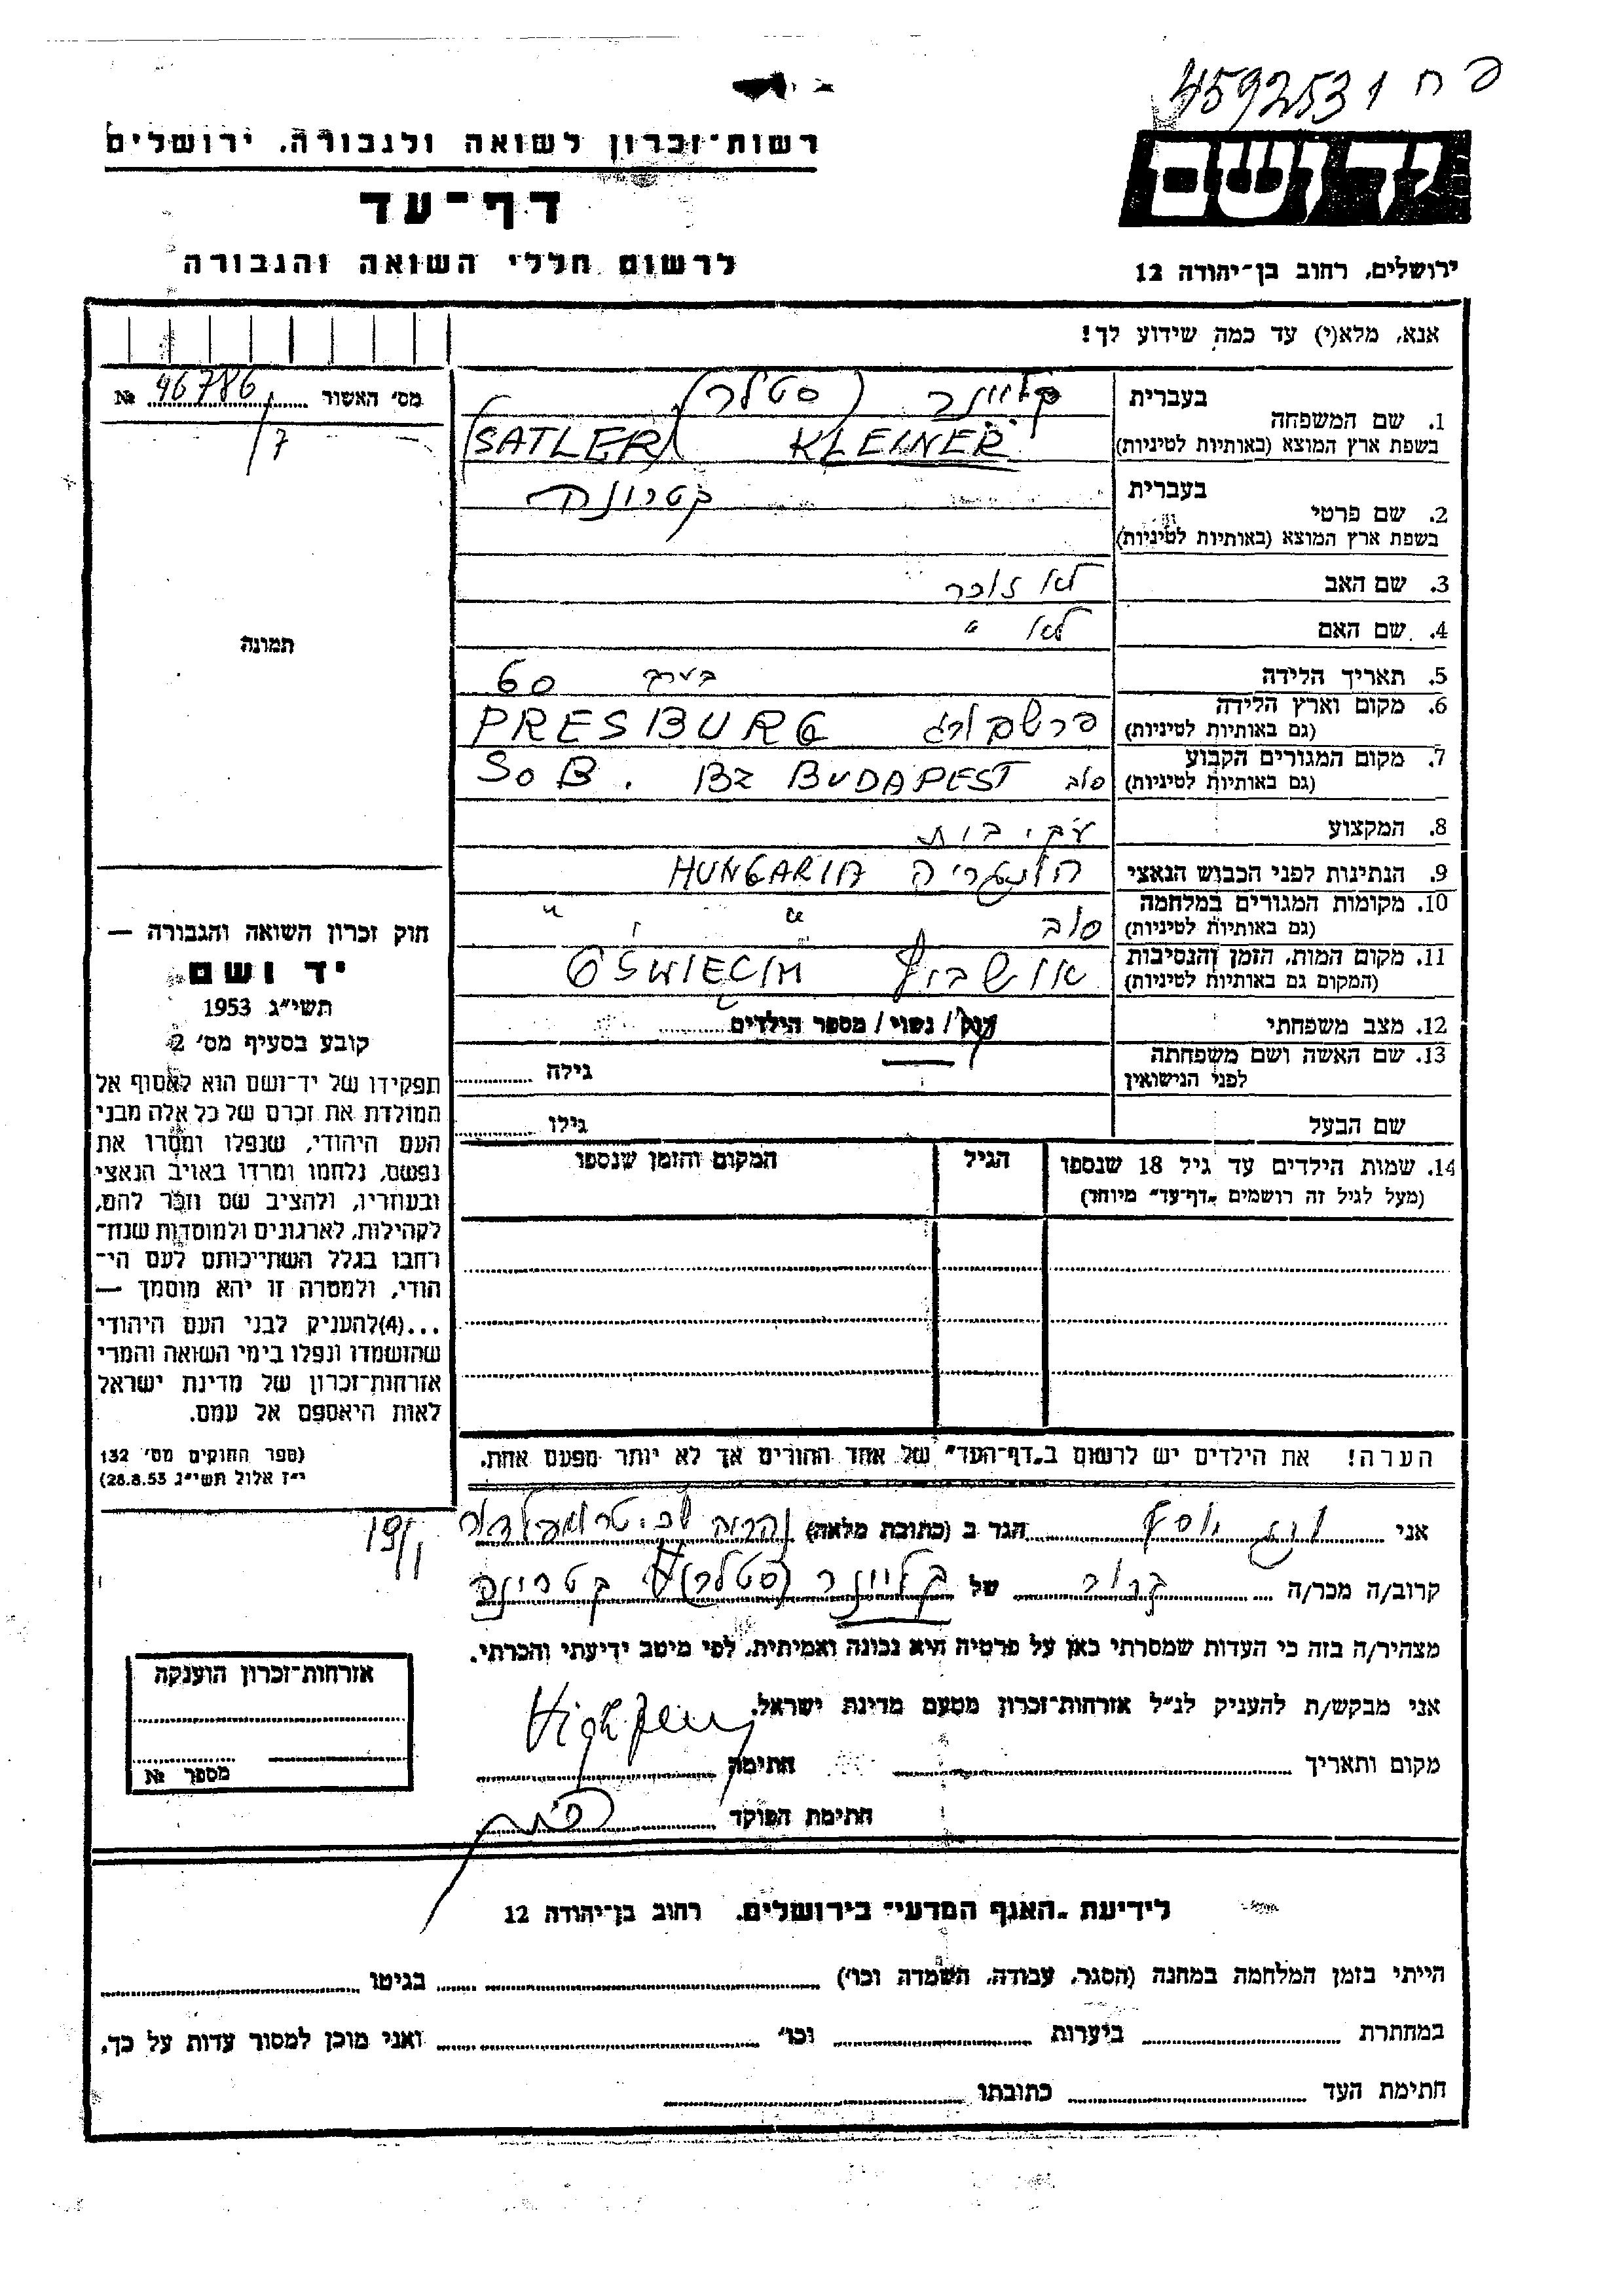 פ ח 4592531
רשות־זכרון לשואה ולגבורה, ירושלים
דף־עד
לרשום חללי השואה והגבורה
יד ושם
ירושלים, רחוב בן־יהודה 12
אנא, מלא(י) עד כמה שידוע לך!
מס' האשור 46786 №
/7
תמונה
1. שם המשפחה
בעברית קליינר (סטלר)
בשפת ארץ המוצא (באותיות לטיניות) (SATLER) KLEINER
2. שם פרטי
בעברית קטרינה
בשפת ארץ המוצא (באותיות לטיניות)
3. שם האב לא זוכר
4. שם האם לא "
5. תאריך הלידה בערך 60
6. מקום וארץ הלידה
(גם באותיות לטיניות) פרשבורג PRESBURG
7. מקום המגורים הקבוע
(גם באותיות לטיניות) סוב SOB. BZ BUDAPEST
8. המקצוע עק. בית
9. הנתינות לפני הכבוש הנאצי הונגריה HUNGARIA
10. מקומות המגורים במלחמה
(גם באותיות לטיניות) סוב " "
11. מקום המות, הזמן והנסיבות
(המקום גם באותיות לטיניות) אושביץ OŚWIĘCIM
12. מצב משפחתי רווק/ נשוי/ מספר הילדים
13. שם האשה ושם משפחתה
לפני הנישואין גילה
שם הבעל גילו
14. שמות הילדים עד גיל 18 שנספו הגיל המקום והזמן שנספו
(מעל לגיל זה רושמים „דף־עד" מיוחד)
הערה! את הילדים יש לרשום ב„דף־העד" של אחד ההורים אך לא יותר מפעם אחת.
חוק זכרון השואה והגבורה —
יד ושם
תשי״ג 1953
קובע בסעיף מס' 2
תפקידו של יד־ושם הוא לאסוף אל
המולדת את זכרם של כל אלה מבני
העם היהודי, שנפלו ומסרו את
נפשם, נלחמו ומרדו באויב הנאצי
ובעוזריו, ולהציב שם וזכר להם,
לקהילות, לארגונים ולמוסדות שנח־
רבו בגלל השתייכותם לעם הי־
הודי, ולמטרה זו יהא מוסמך —
...(4)להעניק לבני העם היהודי
שהושמדו ונפלו בימי השואה והמרי
אזרחות־זכרון של מדינת ישראל
לאות היאספם אל עמם.
(ספר החוקים מס' 132
י״ז אלול תשי״ג 28.8.53)
אני יוסף הגר ב (כתובת מלאה) נהריה
19/1
קרוב/ה מכר/ה קרוב של קליינר (סטלר) קטרינה
מצהיר/ה בזה כי העדות שמסרתי כאן על פרטיה היא נכונה ואמיתית, לפי מיטב ידיעתי והכרתי.
אני מבקש/ת להעניק לנ״ל אזרחות־זכרון מטעם מדינת ישראל.
מקום ותאריך חתימה
חתימת הפוקד
אזרחות־זכרון הוענקה
מספר №
לידיעת „האגף המדעי" בירושלים, רחוב בן־יהודה 12
הייתי בזמן המלחמה במחנה (הסגר, עבודה, השמדה וכו') בגיטו
במחתרת ביערות וכו' ואני מוכן למסור עדות על כך.
חתימת העד כתובתו